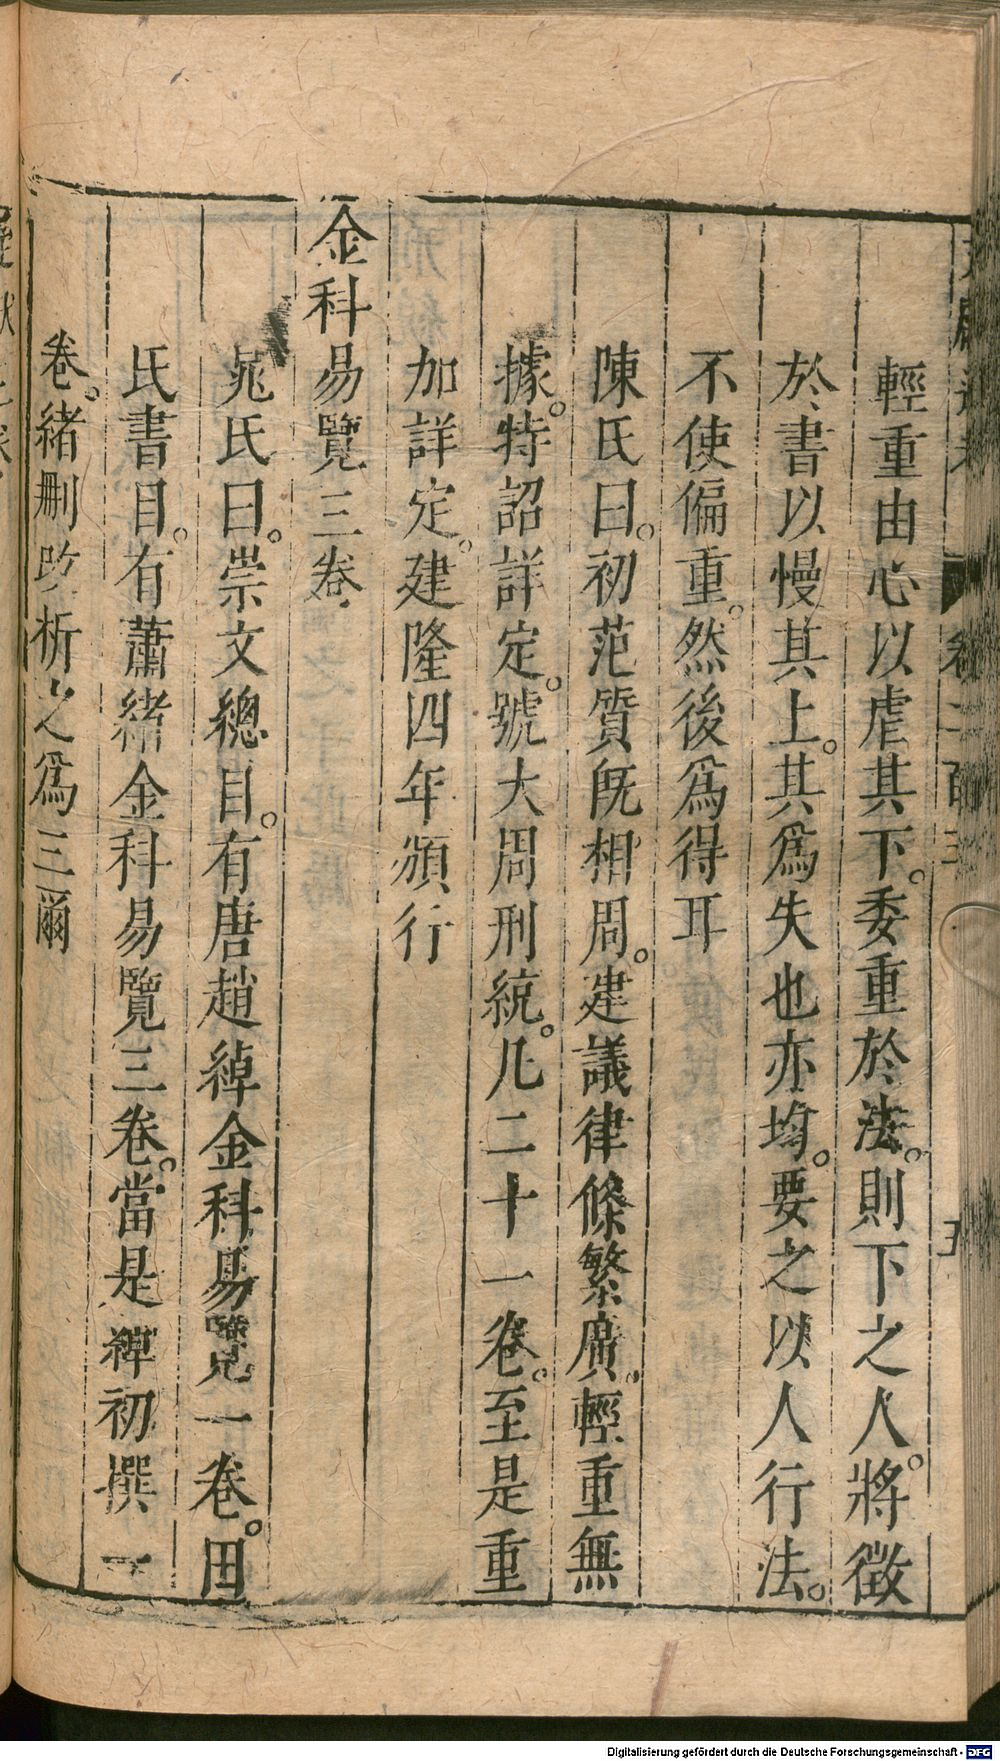 輕重由心以虐其下。委重於法。則下之人。將徵
於書以慢其上。其爲失也亦均。要之以人行法。
不使偏重。然後爲得耳
陳氏曰。初范質旣相周。建議律條繁廣。輕重無
據。特詔詳定。號大周刑統。凡二十一卷。至是重
加詳定。建隆四年頒行
金科易覽三卷
晁氏曰。崇文總目。有唐趙綽金科易覽一卷。田
氏書目。有蕭緒金科易覽三卷。當是綽初撰一
卷。緒刪改析之爲三爾
卷二百三
五
Digitalisierung gefördert durch die Deutsche Forschungsgemeinschaft - DFG